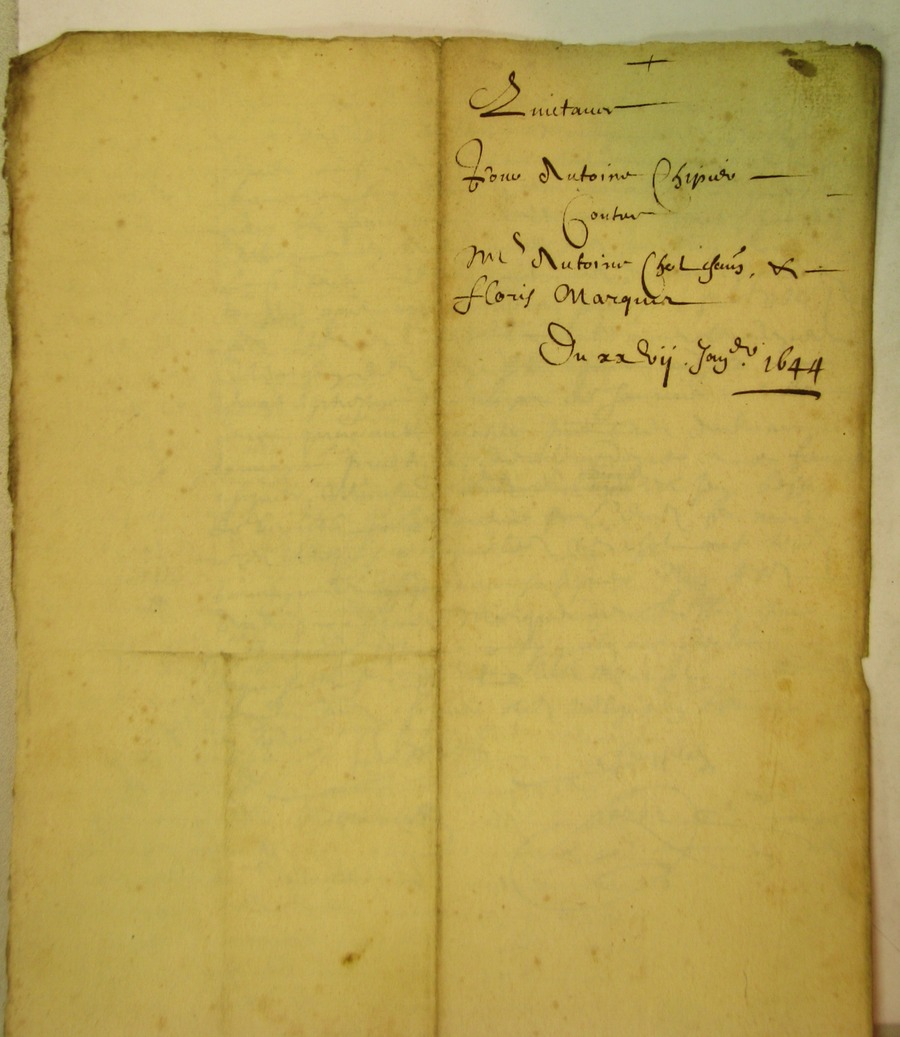 +
Quictance
Pour Antoine Chipier
Contre
Mᵉ Antoine &
floris Marquis
Du xxvij Janᵉʳ 1644